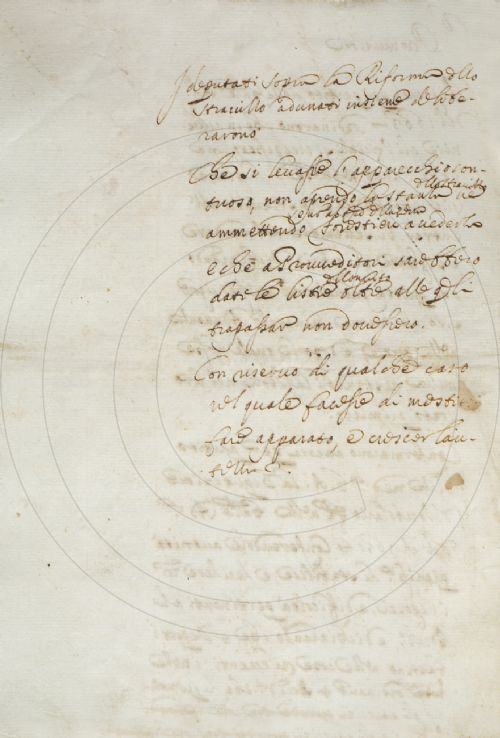 I deputati sopra la Riforma dello
Stravizzo adunati insieme delibe-
rarono
Che si levasse l'apparecchio son-
tuoso, non aprendo le stanze ne
ammettendo forestieri a vederle
e che a Provveditori sarebbero
date le liste oltre alle quali
trapassar non dovessero.
Con riservo di qualche caso
nel quale facesse di mesti-
fare apparato, e crescer lau-